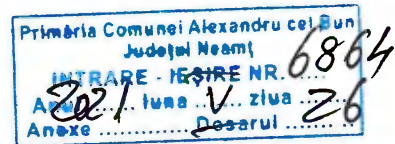 Primăria Comunei Alexandru cel Bun
Județul Neamț
INTRARE - IEȘIRE NR. 6864
Anul 2021 luna V ziua 26
Anexe ............ Dosarul ........